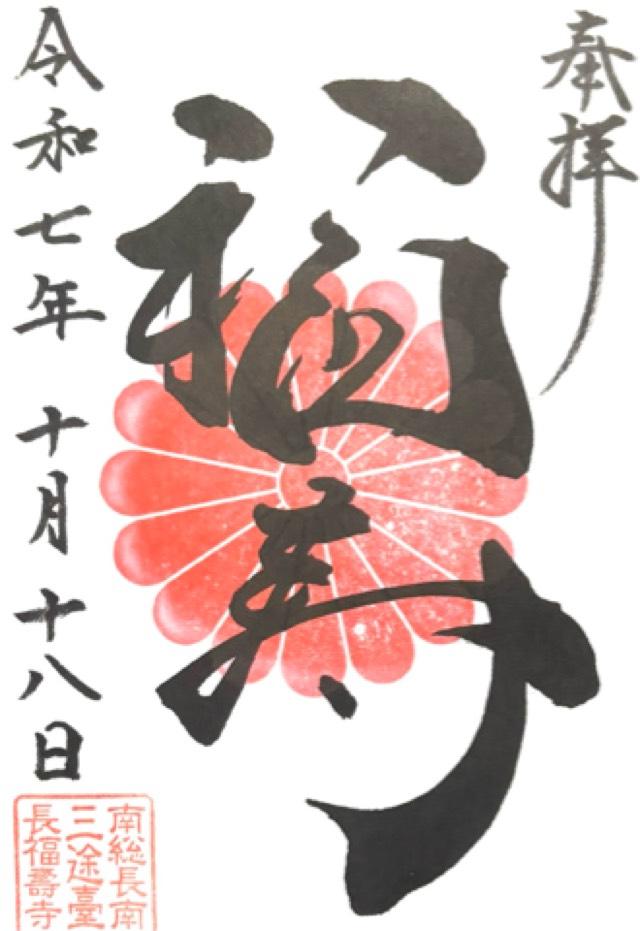 奉拝
福寿
令和七年 十月十八日
南総長南
三途臺
長福壽寺